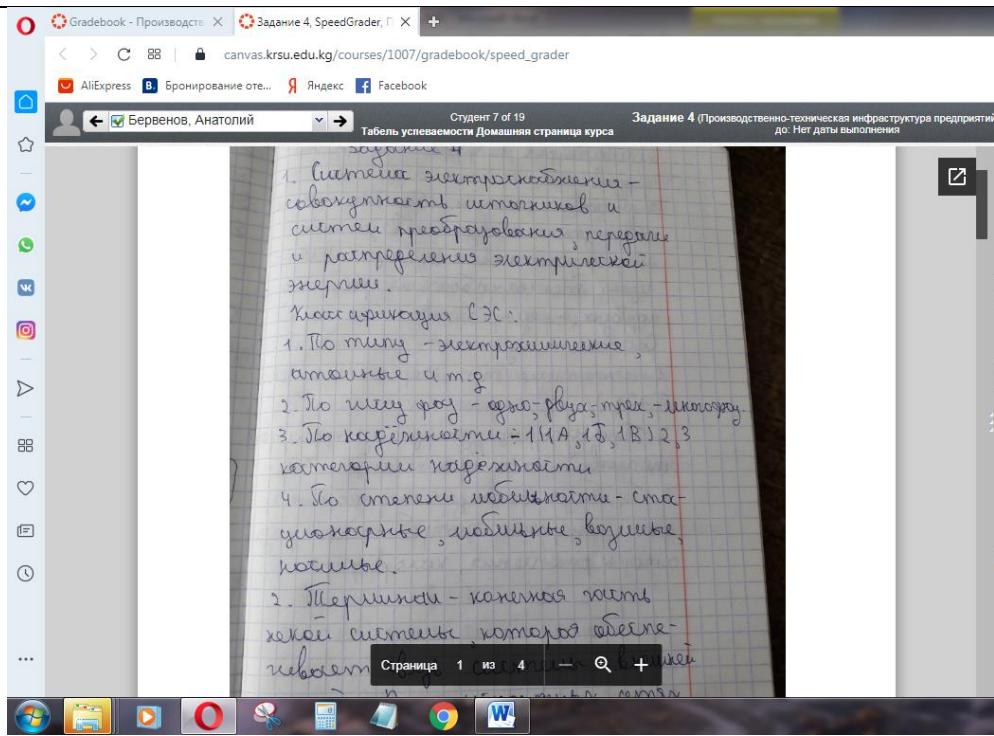 Gradebook - Производств
Задание 4, SpeedGrader, П
canvas.krsu.edu.kg/courses/1007/gradebook/speed_grader
AliExpress
B. Бронирование оте...
Я Яндекс
f Facebook
Бервенов, Анатолий
Студент 7 of 19
Табель успеваемости Домашняя страница курса
Задание 4 (Производственно-техническая инфраструктура предприятий
до: Нет даты выполнения
Задание 4
1. Система электроснабжения -
совокупность источников и
систем преобразования, передачи
и распределения электрической
энергии.
Классификация СЭС:
1. По типу - электрохимические,
атомные и т.д
2. По числу фаз - одно-, двух-, трех-, многофаз.
3. По надёжности - 1(1А, 1Б, 1В) 2, 3
категории надёжности
4. По степени мобильности - ста-
ционарные, мобильные, возимые,
носимые.
2. Терминал - конечная часть
некой системы, которая обеспе-
чивает внешней
Страница 1 из 4
W